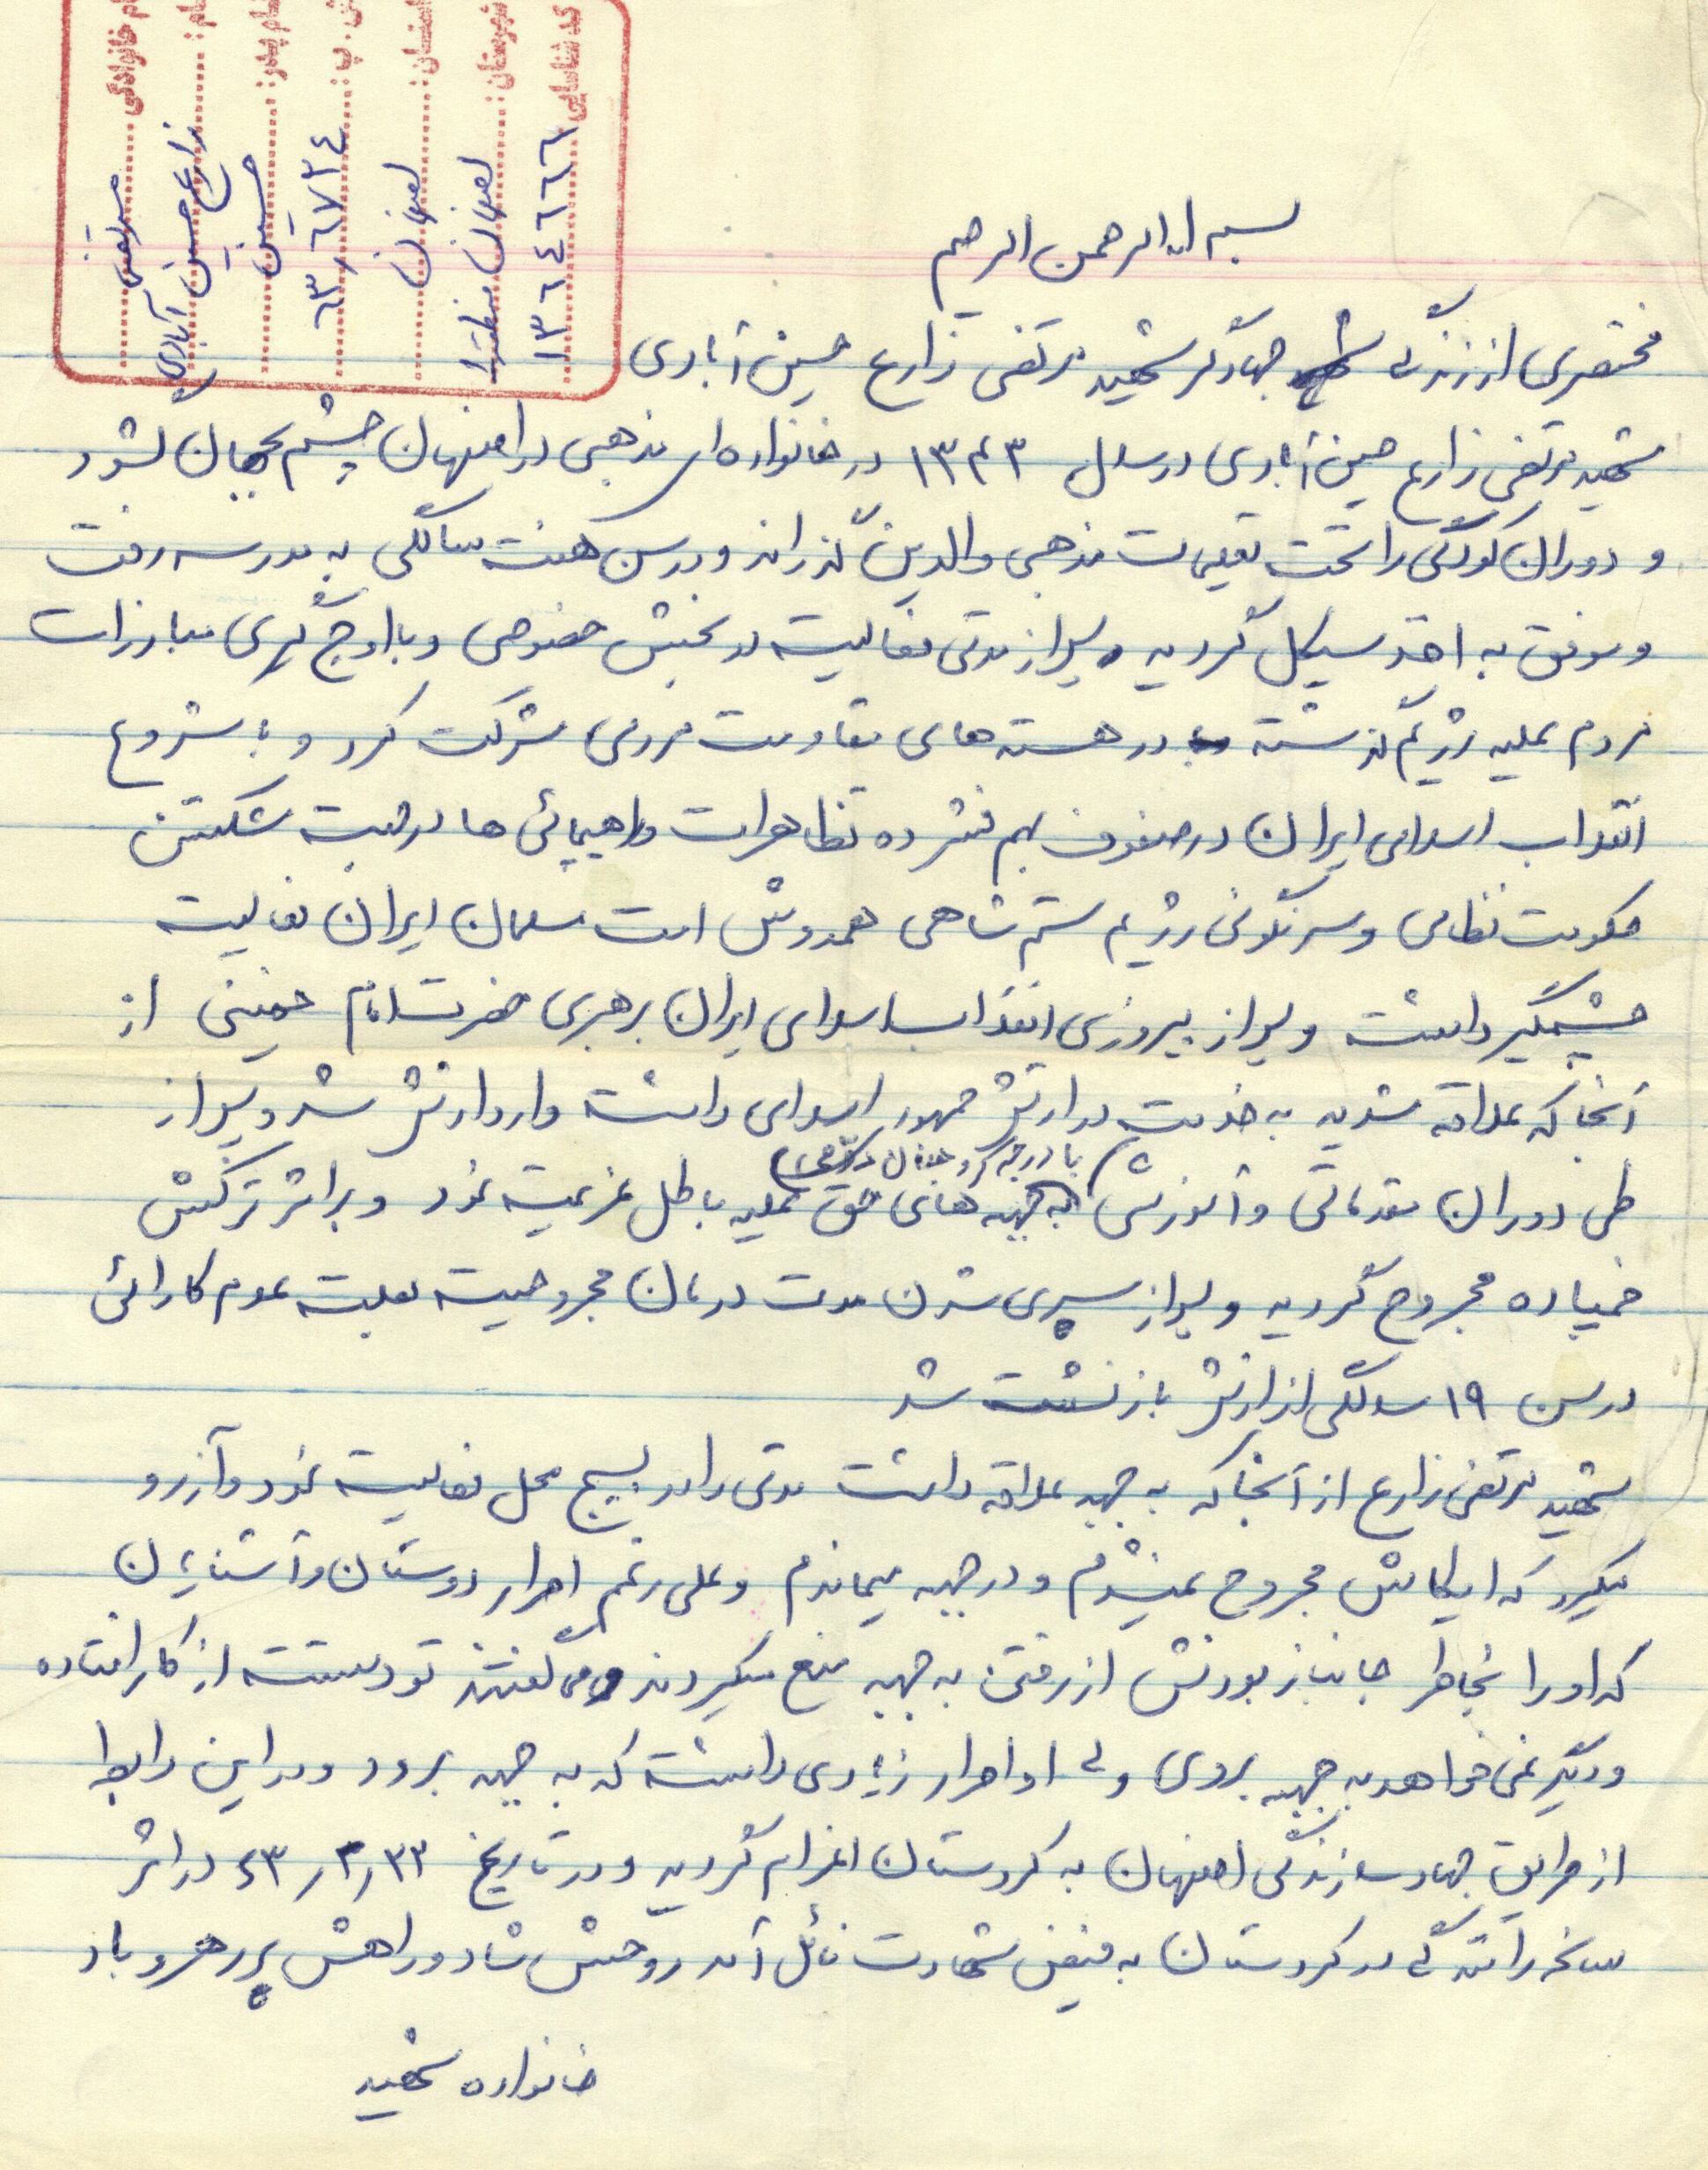 نام خانوادگی مرتضی
نام: زارع حسین آبادی
نام پدر: حسین
ش. پ: ۶۳٫۶۷۲۴
استان: اصفهان
شهرستان: اصفهان منطقه ۱
کد شناسایی ۱۳۶۴۶۶۶
بسم الله الرحمن الرحیم
مختصری از زندگی جهادگر شهید مرتضی زارع حسین آبادی
شهید مرتضی زارع حسین آبادی در سال ۱۳۴۳ در خانواده ای مذهبی در اصفهان چشم بجهان گشود
و دوران کودکی را تحت تعلیمات مذهبی والدین گذراند و در سن هفت سالگی به مدرسه رفت
و موفق به اخذ سیکل گردید و پس از مدتی فعالیت در بخش خصوصی و با اوج گیری مبارزات
مردم علیه رژیم گذشته در هسته های مقاومت مردمی شرکت کرد و با شروع
انقلاب اسلامی ایران در صفوف بهم فشرده تظاهرات و راهپیمائی ها در جهت شکستن
حکومت نظامی و سرنگونی رژیم ستم شاهی همدوش امت مسلمان ایران فعالیت
چشمگیر داشت و پس از پیروزی انقلاب اسلامی ایران برهبری حضرت امام خمینی از
آنجا که علاقه شدید به خدمت در ارتش جمهور اسلامی داشت وارد ارتش شد و پس از
طی دوران مقدماتی و آموزشی با درجه گروهبان به جبهه های حق علیه باطل عزیمت نمود و بر اثر ترکش
خمپاره مجروح گردید و پس از سپری شدن مدت درمان مجروحیت بعلت عدم کارائی
در سن ۱۹ سالگی از ارتش بازنشست شد
شهید مرتضی زارع از آنجا که به جبهه علاقه داشت مدتی را در بسیج محل فعالیت نمود و آرزو
میکرد که ایکاش مجروح نمیشدم و در جبهه میماندم و علی رغم اصرار دوستان و آشنایان
که او را بخاطر جانباز بودنش از رفتن به جبهه منع میکردند و می گفتند تو دستت از کار افتاده
و دیگر نمی خواهد به جبهه بروی ولی او اصرار زیادی داشت که به جبهه برود و در این رابطه
از طریق جهاد سازندگی اصفهان به کردستان اعزام گردید و در تاریخ ۶۳٫۳٫۲۳ در اثر
سانحه رانندگی در کردستان به فیض شهادت نائل آمد روحش شاد و راهش پر رهرو باد
خانواده شهید